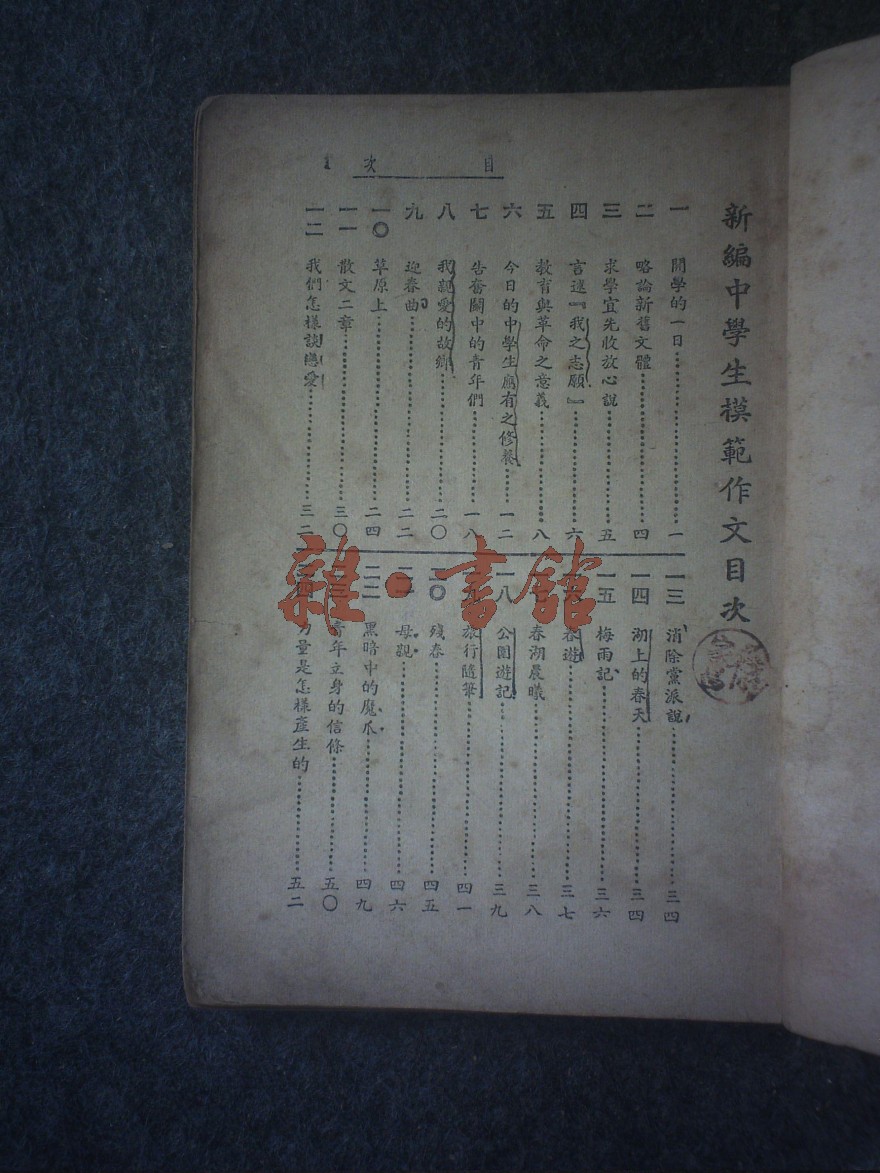 目次 1
新編中學生模範作文目次
一 開學的一日 一
二 略論新舊文體 四
三 求學宜先收放心說 五
四 言述『我之志願』 六
五 教育與革命之意義 八
六 今日的中學生應有之修養 一二
七 告奮鬭中的青年們 一八
八 我親愛的故鄉 二〇
九 迎春曲 二二
一〇 草原上 二四
一一 散文二章 三〇
一二 我們怎樣談戀愛 三二
一三 消除黨派說 三四
一四 湖上的春天 三四
一五 梅雨記 三六
一六 春遊 三七
一七 春湖晨曦 三八
一八 公園遊記 三九
一九 旅行隨筆 四一
二〇 殘春 四五
二一 母親 四六
二二 黑暗中的魔爪 四九
二三 青年立身的信條 五〇
二四 力量是怎樣產生的 五二
雜·書館